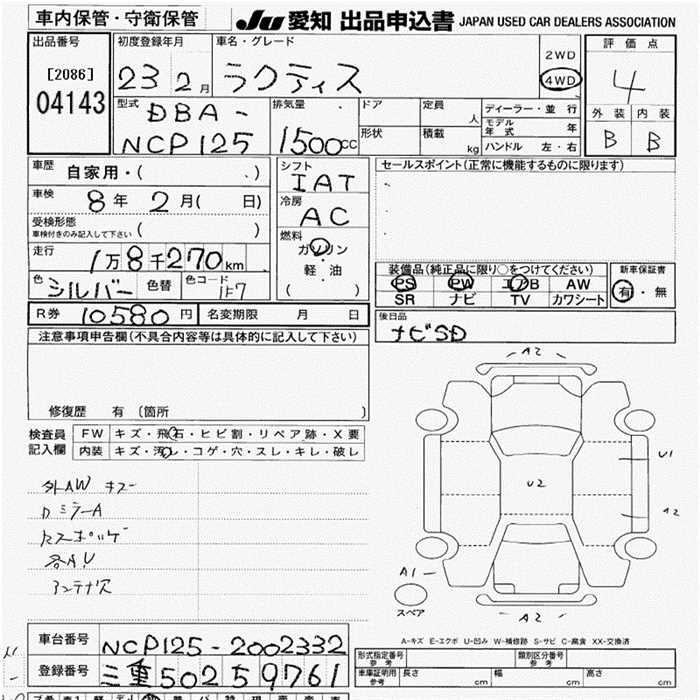 車内保管・守衛保管 JU 愛知 出品申込書 JAPAN USED CAR DEALERS ASSOCIATION
出品番号 初度登録年月 車名・グレード 評価点
[2086] 23 2月 ラクティス 2WD 4WD 4
04143 型式 DBA- 排気量 ドア 定員 人 ディーラー・並行 外装 内装
NCP125 1500cc 形状 積載 kg モデル年式 年 B B
ハンドル 左・右
車歴 自家用・( ) シフト IAT セールスポイント(正常に機能するものに限ります)
車検 8年 2月( 日) 冷房 AC
受検形態 ( )
車検付きのみ記入して下さい
燃料 ガソリン
走行 1万8千270km 軽・油
( )
装備品(純正品に限り○をつけてください) 新車保証書
色 シルバー 色替 色コード 1F7
PS PW エアB AW 有・無
SR ナビ TV カワシート
R券 10580円 名変期限 月 日 後日品
ナビSD
注意事項申告欄(不具合内容等は具体的に記入して下さい)
修復歴 有 (箇所 )
検査員 FW キズ・飛石・ヒビ割・リペア跡・X要
記入欄 内装 キズ・汚レ・コゲ・穴・スレ・キレ・破レ
外AW キズ
ミラーA
アンテナ欠
A2
U1
U2
A2
A1
スペア
A2
A-キズ E-エクボ U-凹み W-補修跡 S-サビ C-腐食 XX-交換済
車台番号 NCP125-2002332
登録番号 三重502 59761
形式指定番号 参考 類別区分番号 参考
車庫証明用 参考 長さ cm 幅 cm 高さ cm